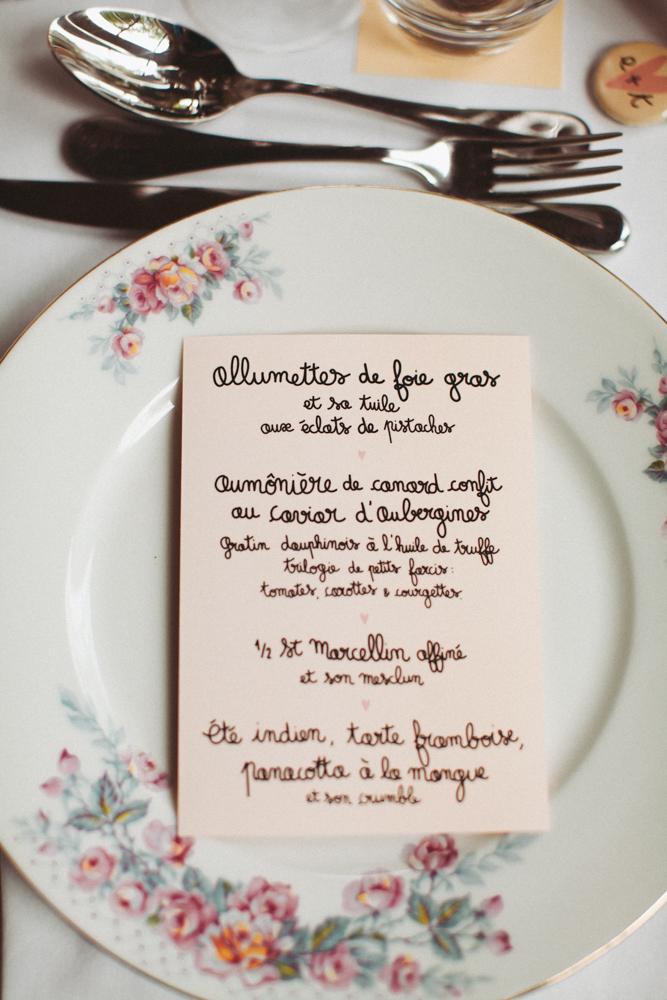 a + K
allumettes de foie gras
et sa tuile
aux éclats de pistaches
aumônière de canard confit
au caviar d'aubergines
gratin dauphinois à l'huile de truffe
trilogie de petits farcis:
tomates, carottes & courgettes.
1/2 St Marcellin affiné
et son mesclun
Été indien, tarte framboise,
panacotta à la mangue
et son crumble